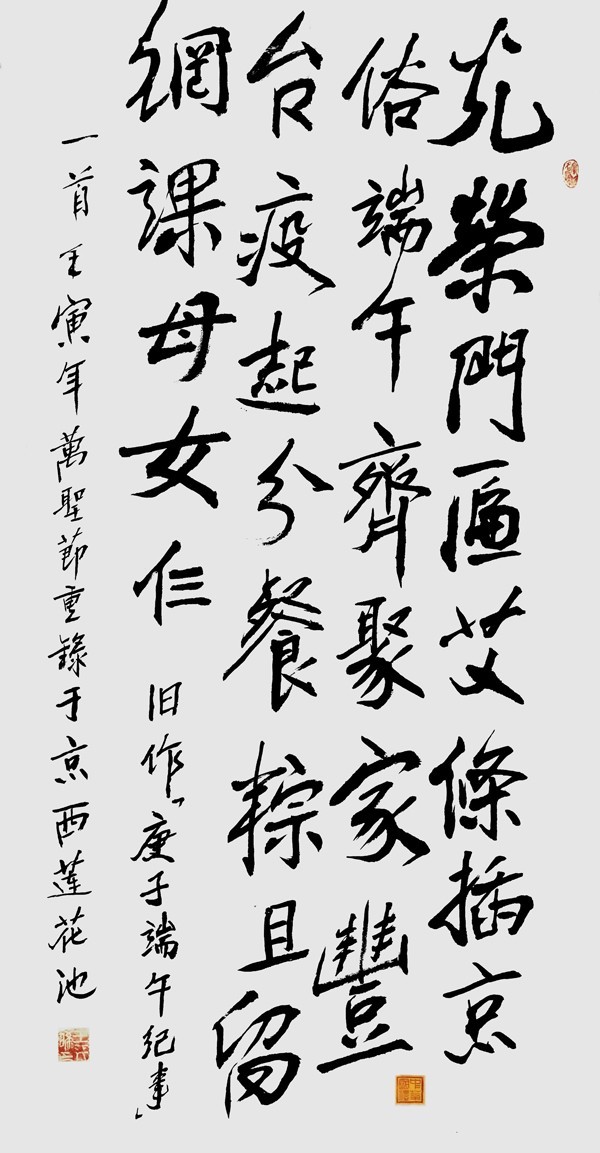 光榮門匾艾條插京
俗端午齊聚家豐
台疫起分餐粽且留
網課母女仨
旧作「庚子端午纪事」
一首壬寅年萬聖節重錄于京西蓮花池